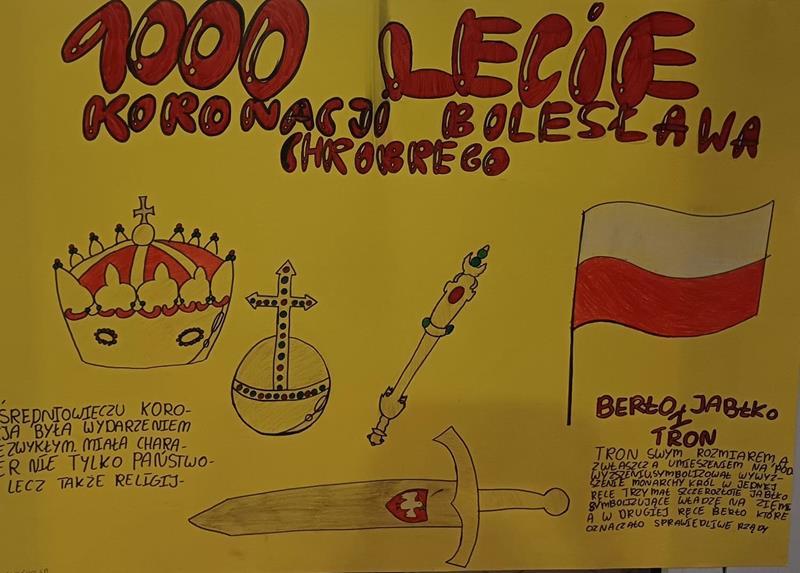 1000 LECIE
KORONACJI BOLESŁAWA
CHROBREGO
ŚREDNIOWIECZU KORO-
JA BYŁA WYDARZENIEM
EZWYKŁYM. MIAŁA CHARA-
ER NIE TYLKO PAŃSTWO-
LECZ TAKŻE RELIGIJ-
BERŁO JABŁKO
I
TRON
TRON SWYM ROZMIAREM, A
ZWŁASZCZA UMIESZENIEM NA POD
WYŻSZENIU, SYMBOLIZOWAŁ WYWYŻ-
SZENIE MONARCHY KRÓL W JEDNEJ
RĘCE TRZYMAŁ SZCZEROZŁOTE JABŁKO
SYMBOLIZUJĄCE WŁADZĘ NA ZIEMI
A W DRUGIEJ RĘCE BERŁO KTÓRE
OZNACZAŁO SPRAWIEDLIWE RZĄDY